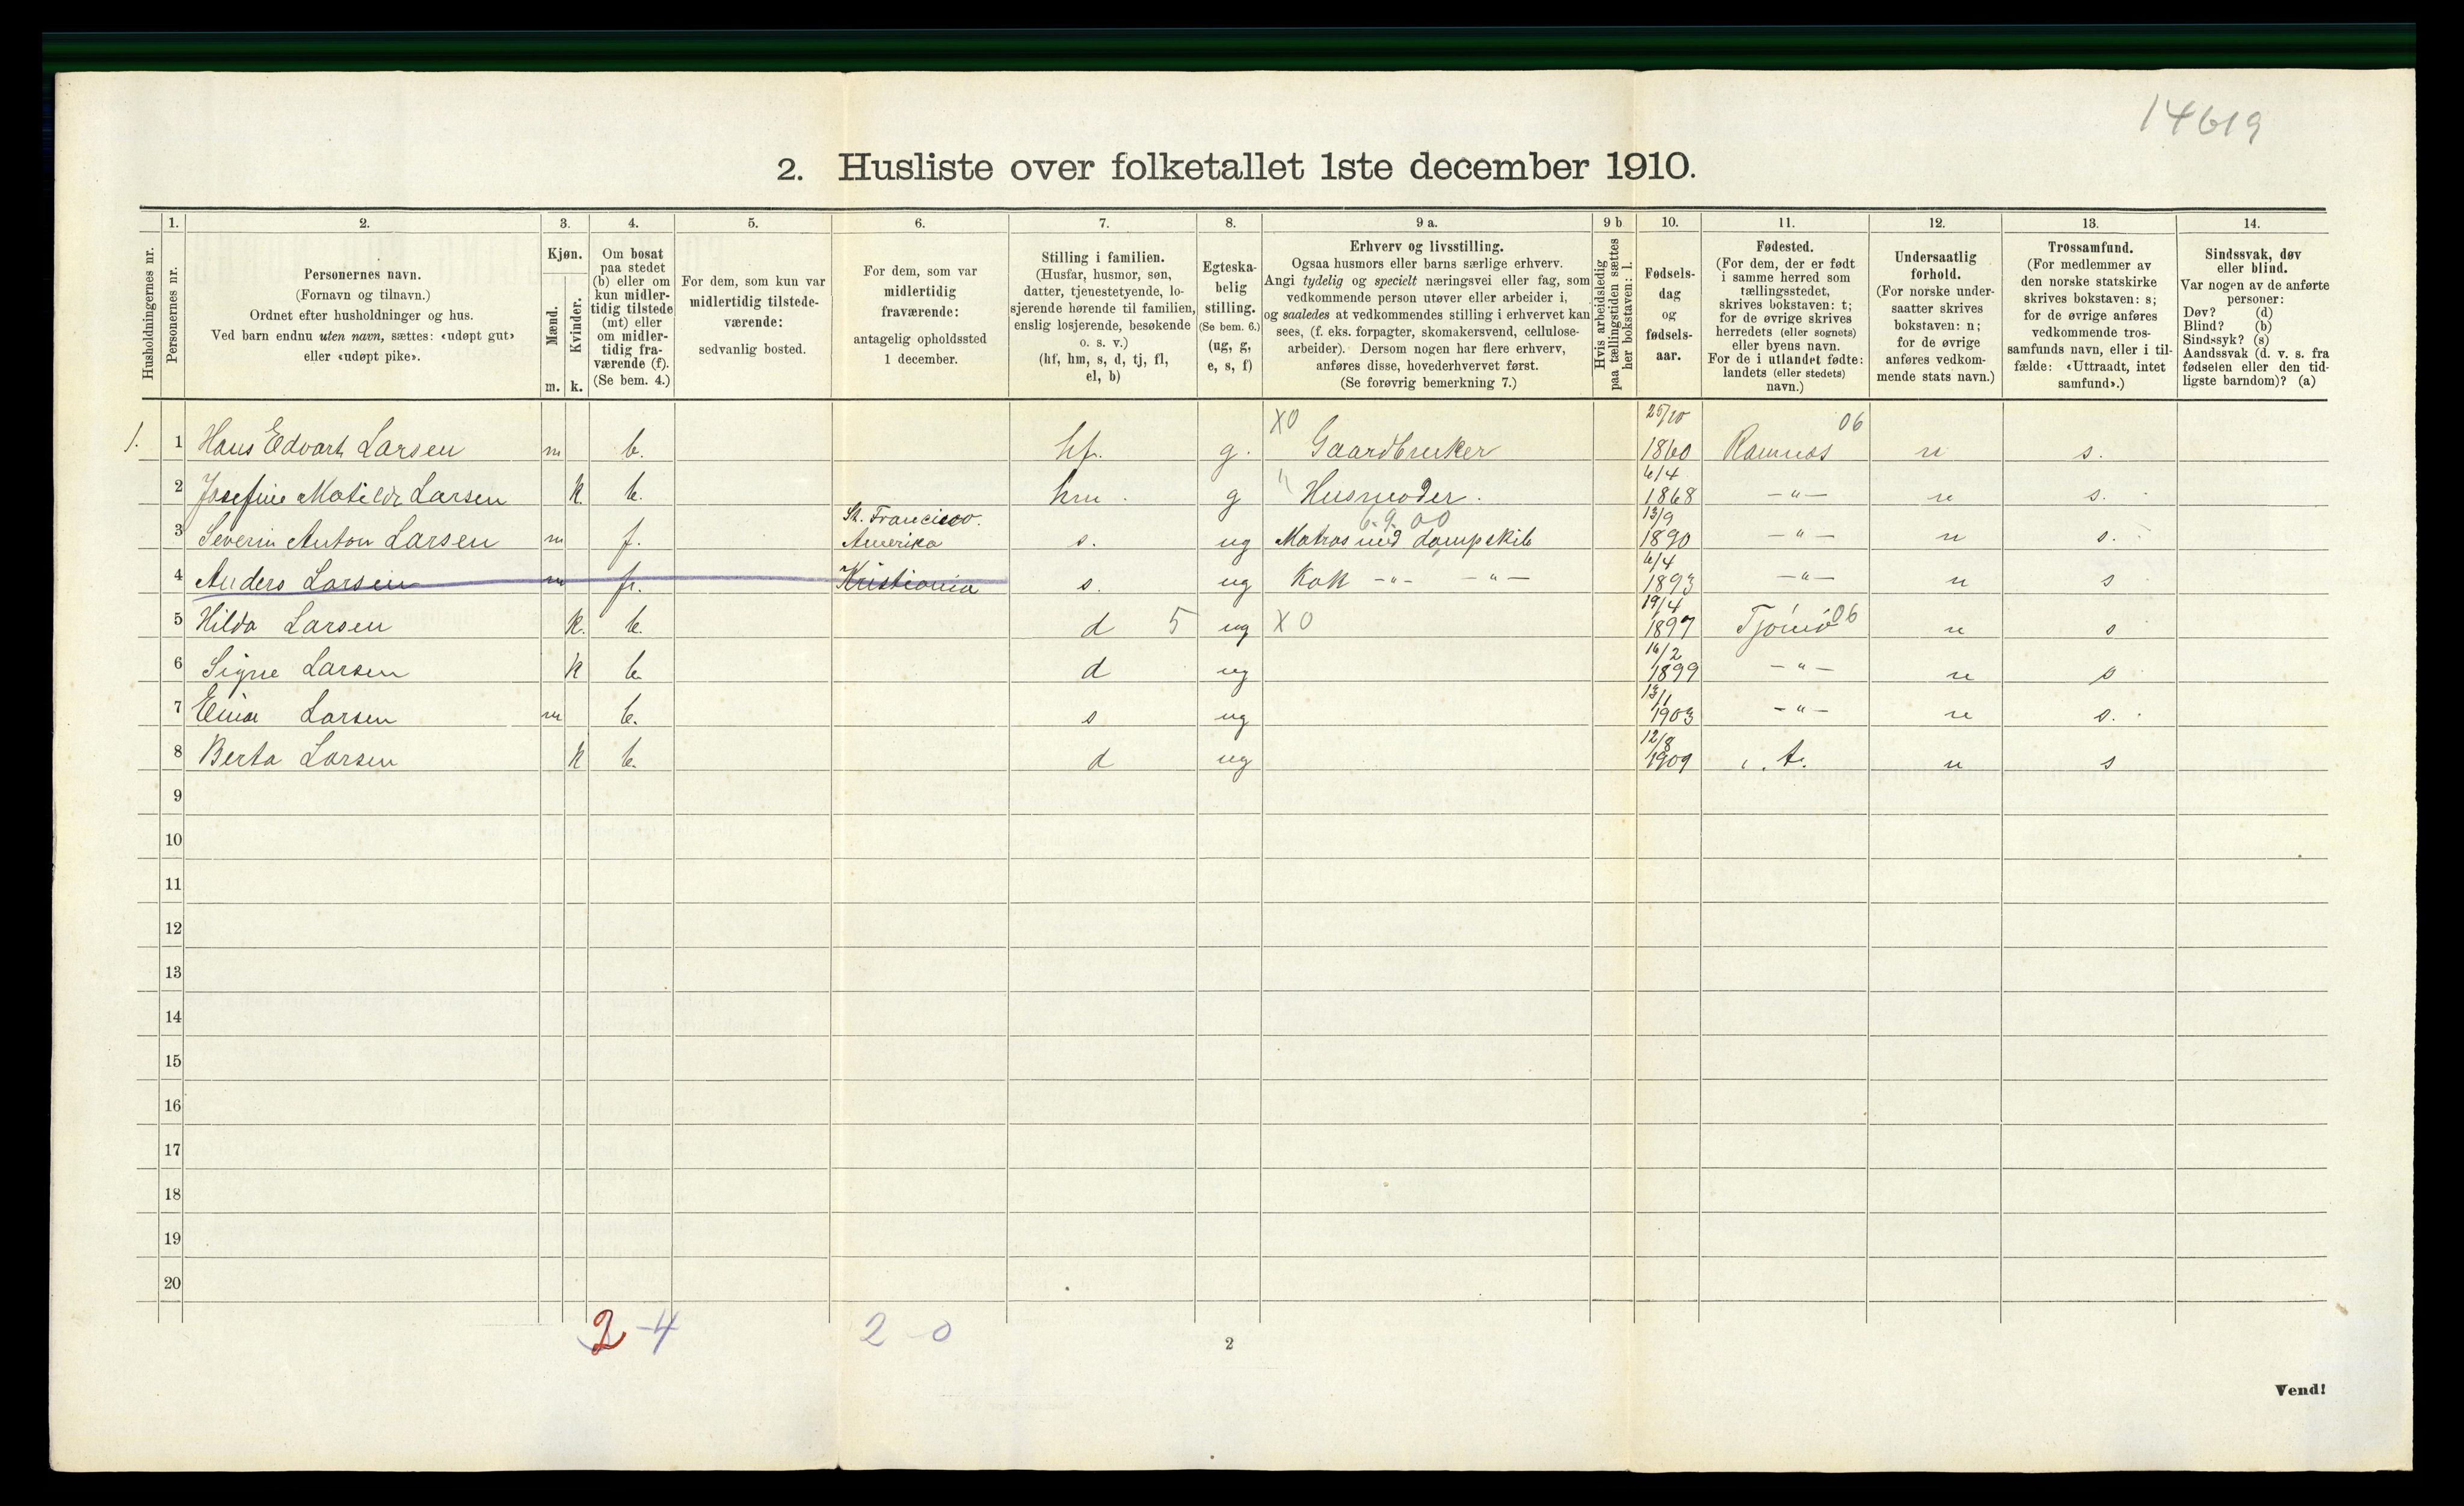 14619
2. Husliste over folketallet 1ste december 1910.
1. 2. 3. 4. 5. 6. 7. 8. 9 a. 9 b 10. 11. 12. 13. 14.
Husholdningernes nr.
Personernes nr.
Personernes navn.
(Fornavn og tilnavn.)
Ordnet efter husholdninger og hus.
Ved barn endnu uten navn, sættes: «udøpt gut»
eller «udøpt pike».
Kjøn.
Mænd.
Kvinder.
m. k.
Om bosat
paa stedet
(b) eller om
kun midler-
tidig tilstede
(mt) eller
om midler-
tidig fra-
værende (f).
(Se bem. 4.)
For dem, som kun var
midlertidig tilstede-
værende:
sedvanlig bosted.
For dem, som var
midlertidig
fraværende:
antagelig opholdssted
1 december.
Stilling i familien.
(Husfar, husmor, søn,
datter, tjenestetyende, lo-
sjerende hørende til familien,
enslig losjerende, besøkende
o. s. v.)
(hf, hm, s, d, tj, fl,
el, b)
Egteska-
belig
stilling.
(Se bem. 6.)
(ug, g,
e, s, f)
Erhverv og livsstilling.
Ogsaa husmors eller barns særlige erhverv.
Angi tydelig og specielt næringsvei eller fag, som
vedkommende person utøver eller arbeider i,
og saaledes at vedkommendes stilling i erhvervet kan
sees, (f. eks. forpagter, skomakersvend, cellulose-
arbeider). Dersom nogen har flere erhverv,
anføres disse, hovederhvervet først.
(Se forøvrig bemerkning 7.)
Hvis arbeidsledig
paa tællingstiden sættes
her bokstaven: l.
Fødsels-
dag
og
fødsels-
aar.
Fødested.
(For dem, der er født
i samme herred som
tællingsstedet,
skrives bokstaven: t;
for de øvrige skrives
herredets (eller sognets)
eller byens navn.
For de i utlandet fødte:
landets (eller stedets)
navn.)
Undersaatlig
forhold.
(For norske under-
saatter skrives
bokstaven: n;
for de øvrige
anføres vedkom-
mende stats navn.)
Trossamfund.
(For medlemmer av
den norske statskirke
skrives bokstaven: s;
for de øvrige anføres
vedkommende tros-
samfunds navn, eller i til-
fælde: «Uttraadt, intet
samfund».)
Sindssvak, døv
eller blind.
Var nogen av de anførte
personer:
Døv? (d)
Blind? (b)
Sindssyk? (s)
Aandssvak (d. v. s. fra
fødselen eller den tid-
ligste barndom)? (a)
X0 25/10 06
1. 1 Hans Edvart Larsen m b. hf. g. Gaardbruker 1860 Ramnes n s.
6/4
2 Josefine Matilde Larsen k b. hm. g " Husmoder. 1868 -"- n s.
St. Francisco. 6.9.00 13/9
3 Severin Anton Larsen m f. Amerika s. ug Matros med dampskib 1890 -"- n s.
6/4
4 Anders Larsen m fr. Kristiania s. ug Kok -"- -"- 1893 -"- n s
19/4
5 Hilda Larsen k. b. d 5 ug X0 1897 Tjømø 06 n s
16/2
6 Signe Larsen k b. d ug 1899 -"- n s
13/1
7 Einar Larsen m b. s ug 1903 -"- n s.
12/8
8 Berta Larsen k b. d ug 1909 t. n s
9
10
11
12
13
14
15
16
17
18
19
20
2-4 2-0
2
Vend!